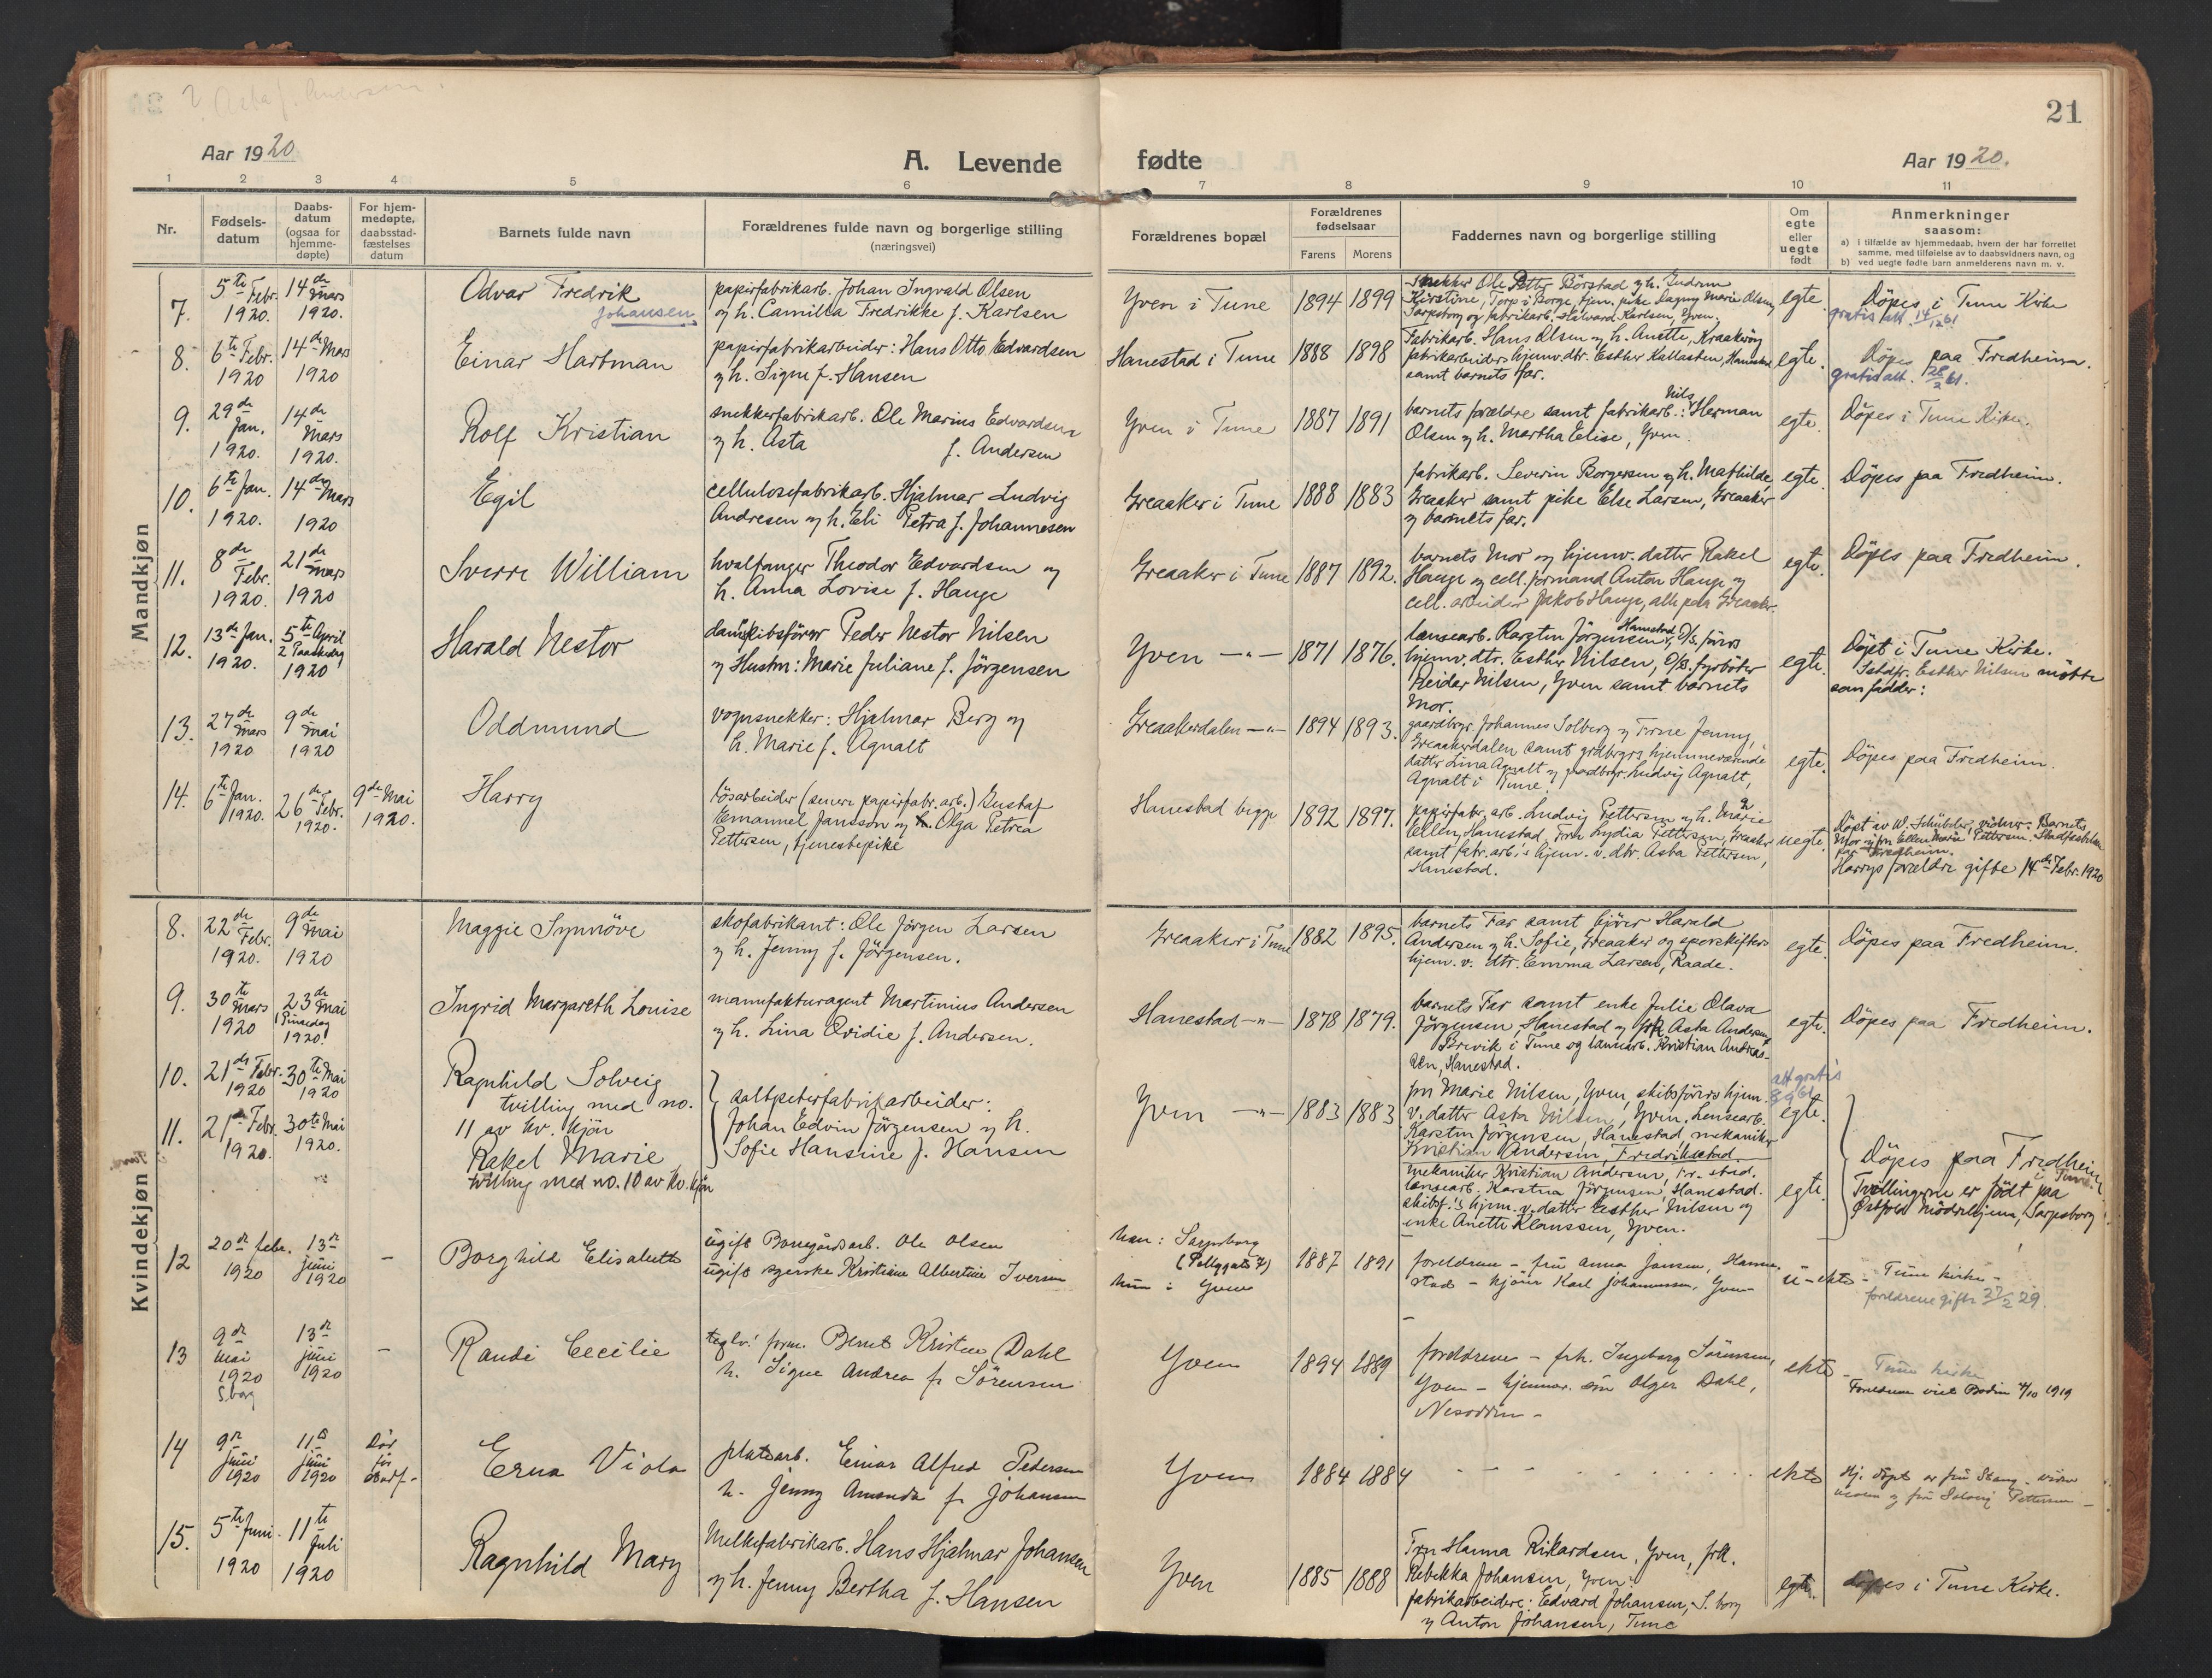 21
Aar 1920
A. Levende fødte
Aar 1920.
1 2 3 4 5 6 7 8 9 10 11
Nr.
Fødsels-
datum
Daabs-
datum
(ogsaa for
hjemme-
døpte)
For hjem-
medøpte,
daabsstad-
fæstelses
datum
Barnets fulde navn
Forældrenes fulde navn og borgerlige stilling
(næringsvei)
Forældrenes bopæl
Forældrenes
fødselsaar
Farens Morens
Faddernes navn og borgerlige stilling
Om
egte
eller
uegte
født
Anmerkninger
saasom:
a) i tilfælde av hjemmedaab, hvem der har forrettet
samme, med tilføielse av to daabsvidners navn, og
b) ved uegte fødte barn anmelderens navn m. v.
Mandkjøn
7.
5te Febr.
1920.
14de Mars
1920.
Odvar Fredrik
Johansen
papirfabrikarb. Johan Ingvald Olsen
og h. Camilla Fredrikke f. Karlsen
Yven i Tune
1894 1899
Snekker Ole Petter Börstad og h. Gudrun
Kirstine, Torp i Borge, tjen. pike Dagny Marie Olsen
Sarpsborg og fabrikarb. Halvard Karlsen, Yven.
egte
Döpes i Tune Kirke
gratis att. 14/12 61
8.
6te Febr.
1920
14de Mars
1920
Einar Hartman
papirfabrikarbeider: Hans Otto Edvardsen
og h. Signe f. Hansen
Hanestad i Tune
1888 1898
Fabrikarb. Hans Olsen og h. Anette, Kraakerög
fabrikarbeiders hjemv. dtr. Esther Kallasten, Hanestad
samt barnets far.
egte.
Döpes paa Fredheim.
gratis att. 28/2 61.
9.
29de
Jan.
1920.
14de
Mars
1920.
Rolf Kristian
snekkerfabrikarb. Ole Marius Edvardsen
og h. Asta f. Andersen
Yven i Tune
1887 1891
barnets forældre samt fabrikarb.: Nils Herman
Olsen og h. Martha Elise, Yven.
egte.
Döpes i Tune Kirke.
10.
6te Jan.
1920.
14de Mars
1920
Egil
cellulosefabrikarb. Hjalmar Ludvig
Andresen og h. Eli Petra f. Johannesen
Greaaker i Tune
1888 1883
fabrikarb. Severin Borgersen og h. Mathilde,
Greaaker samt pike Else Larsen, Greaaker
og barnets far.
egte.
Döpes paa Fredheim.
11.
8de
Febr.
1920.
21de
Mars
1920
Sverre William
hvalfanger Theodor Edvardsen og
h. Anna Lovise f. Hauge
Greaaker i Tune
1887 1892.
barnets Mor og hjemv. datter Rakel
Hauge og cell. formand Anton Hauge og
cell. arbeider Jakob Hauge, alle paa Greaaker.
egte.
Döpes paa Fredheim.
12.
13de Jan.
1920.
5te April
2 Paaskedag
1920
Harald Nestor
dampskibsförer Peder Nestor Nilsen
og Hustru: Marie Juliane f. Jörgensen
Yven —"—
1871 1876.
lensearb. Karsten Jörgensen, Hanestad, D/S. förers
hjemv. dtr. Esther Nilsen, D/S. fyrböter
Reidar Nilsen, Yven samt barnets
Mor.
egte.
Döpt i Tune Kirke.
Istedf. Esther Nilsen mötte
som fadder:
13.
27de
Mars
1920
9de
Mai
1920
Oddmund
vognsnekker: Hjalmar Berg og
h. Marie f. Agnalt
Greaakerdalen —"—
1894 1893.
gaardbrgr. Johannes Solberg og Frue Jenny,
Greaakerdalen samt grdbrgrs hjemmeværende
datter Lina Agnalt og gaardbrgr. Ludvig Agnalt,
Agnalt i Tune.
egte.
Döpes paa Fredheim.
14.
6te Jan.
1920.
26de Febr.
1920.
9de Mai
1920.
Harry
lösarbeider (senere papirfabr. arb.) Gustaf
Emanuel Jansson og Olga Petrea
Pettersen, tjenestepike
Hanestad begge
1892 1897.
papirfabr. arb. Ludvig Pettersen og h. Marie
Ellen, Hanestad, Fru Lydia Pettersen, Greaaker
samt fabr. arb.'s hjem. v. dtr. Asta Pettersen,
Hanestad.
uegte.
Döpt av W. Schübeler, vidner: Barnets
Mor og fru Ellen Marie Pettersen. Stadfæstelsen
paa Fredheim.
Harrys forældre gifte 14de Febr. 1920
Kvindekjøn
8.
22de
Febr.
1920.
9de
Mai
1920
Maggie Synnöve
skofabrikant: Ole Jörgen Larsen
og h. Jenny f. Jörgensen.
Greaaker i Tune
1882 1895.
barnets Far samt kjörer Harald
Andersen og h. Sofie, Greaaker og eporskifters
hjem. v. dtr. Emma Larsen, Raade.
egte.
Döpes paa Fredheim.
9.
30te
Mars
1920
23de
Mai
1 Pinsedag
1920.
Ingrid Margareth Louise
manufakturagent Martinius Andersen
og h. Lina Ovidie f. Andersen.
Hanestad —"—
1878 1879.
barnets Far samt enke Julie Olava
Jörgensen, Hanestad og frk Asta Andersen,
Brevik i Tune og lensearb. Kristian Andreas-
sen, Hanestad.
egte.
Döpes paa Fredheim.
10.
21de Febr.
1920
30te Mai
1920
Ragnhild Solveig
tvilling med no.
11 av kv. kjön
saltpeterfabrikarbeider:
Johan Edvin Jörgensen og h.
Sofie Hansine f. Hansen
Yven —"—
1883 1883
fru Marie Nilsen, Yven, skibsförers hjem.
v. datter Asta Nilsen, Yven. Lensearb.
Karsten Jörgensen, Hanestad, mekaniker
Kristian Andersen, Fredriksstad.
att gratis
egte.
11.
21de Febr.
1920.
30te Mai
1920.
Rakel Marie
tvilling med no. 10 av kv. kjön
mekaniker Kristian Andersen, Fr. stad.
lensearb. Karsten Jörgensen, Hanestad.
skibsf.'s hjem. v. datter Esther Nilsen og
enke Anette Klanssen, Yven.
egte.
Döpes paa Fredheim
i Tune.
Tvillingerne er födt paa
Østfold Mödrehjem, Sarpsborg
12
20de febr.
1920
13de
juni
1920
–
Borghild Elisabeth
ugift Borregårdsarb. Ole Olsen
ugift syerske Kristiane Albertine Iversen
han: Sarpsborg
hun: Yven
1887 1891
foreldrene – fru Anna Jansen, Hanne-
stad – kjörer Karl Johannessen, Yven
u-ekte
Tune kirke –
foreldrene gift 27/2 29.
13
9de
mai
1920
S.borg
13de
juni
1920
–
Randi Cecilie
teglv. form. Bernt Kristen Dahl
h. Signe Andrea f. Sörensen
Yven
1894 1889
foreldrene – frk. Ingeborg Sörensen,
Yven – hjemmev. sön Olger Dahl,
Nesodden –
ekte
Tune kirke
Foreldrene viet Bodin 4/10 1919
14
9de
juni
1920
11te
juni
1920
död
för
stadf.
Erna Viola
platsarb. Einar Alfred Pedersen
h. Jenny Amanda f. Johansen
Yven
1884 1884
ekte
Hj. döpt av fru Stang
og fru Solveig Pettersen –
15.
5te Juni
1920
11te
Juli
1920
Ragnhild Mary
Melkefabrikarb. Hans Hjalmar Johansen
og h. Jenny Bertha f. Hansen
Yven
1885 1888
Fru Hanna Rikardsen, Yven, frk.
Rebekka Johansen, Yven.
fabrikarbeidere: Edvard Johansen, S. borg
og Anton Johansen, Tune
egte.
döpes i Tune Kirke.